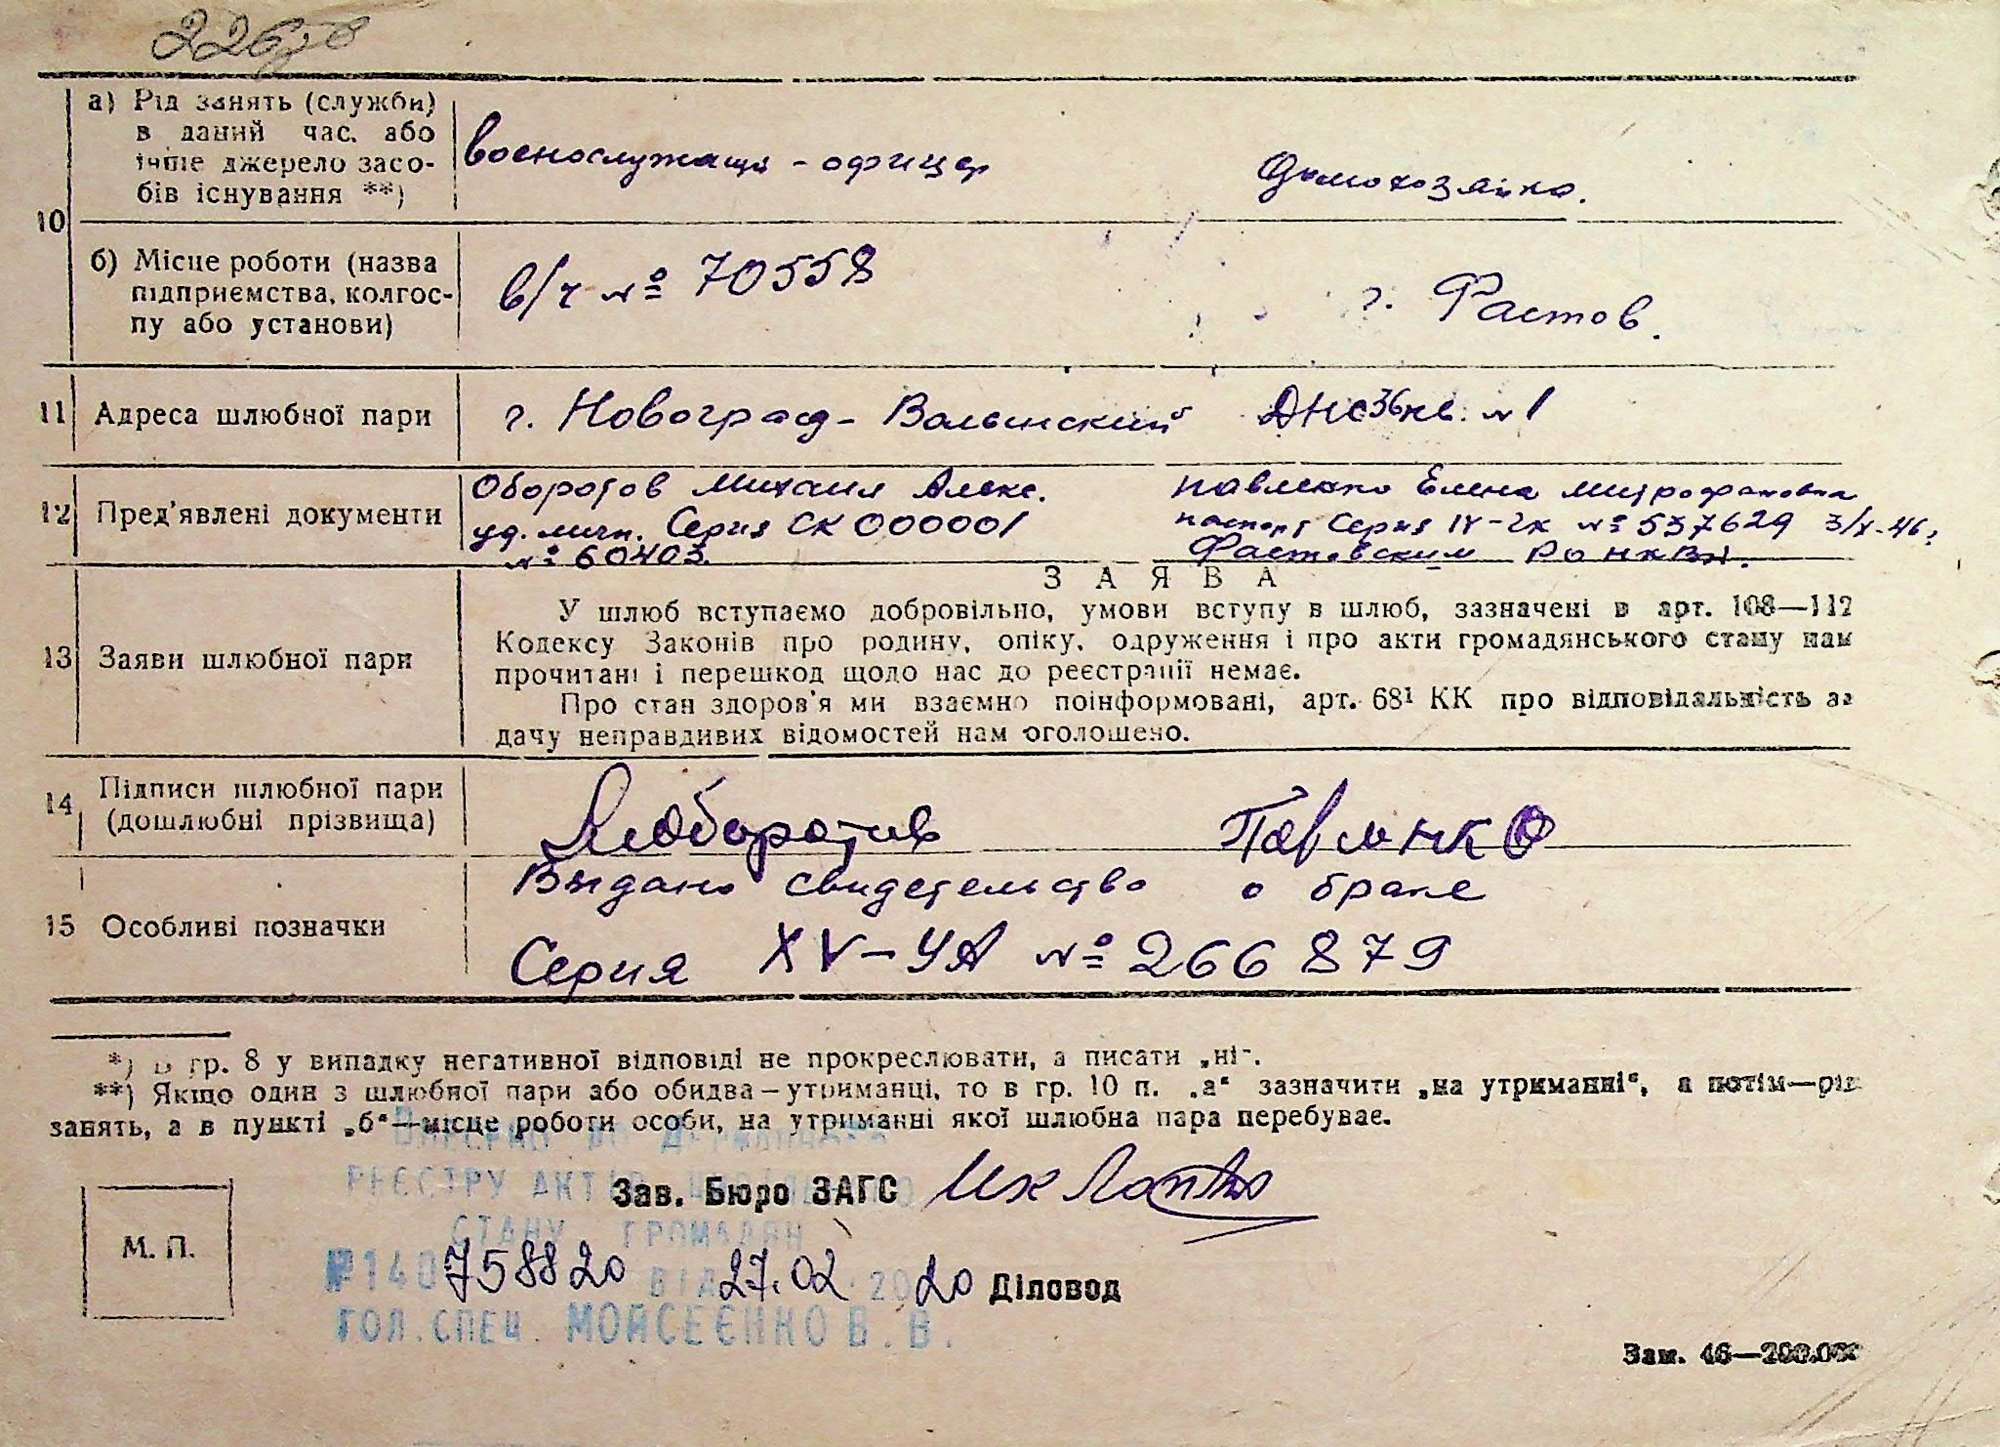 а) Рід занять (служби)
в даний час, або
інше джерело засо-
бів існування **)
военнослужащи - офицер
Домохозяйка.
10
б) Місце роботи (назва
підприємства, колгос-
пу або установи)
в/ч № 70558
г. Фастов.
11 Адреса шлюбної пари
г. Новоград-Волынский ДНС 36 кв. № 1
12 Пред'явлені документи
Оборотов Михаил Алекс.
уд. личн. Серия СК 000001
№ 60403.
Павленко Елена Митрофановна
паспорт Серия IV-ЧК № 537629 3/X-46г
Фастовским РО НКВД.
ЗАЯВА
13 Заяви шлюбної пари
У шлюб вступаємо добровільно, умови вступу в шлюб, зазначені в арт. 108—112
Кодексу Законів про родину, опіку, одруження і про акти громадянського стану нам
прочитані і перешкод щодо нас до реєстрації немає.
Про стан здоров'я ми взаємно поінформовані, арт. 68¹ КК про відповідальність за
дачу неправдивих відомостей нам оголошено.
14 Підписи шлюбної пари
(дошлюбні прізвища)
Оборотов Павленко
15 Особливі позначки
Выдано свидетельство о браке
Серия XV-УА № 266879
*) В гр. 8 у випадку негативної відповіді не прокреслювати, а писати „ні“.
**) Якщо один з шлюбної пари або обидва—утриманці, то в гр. 10 п. „а“ зазначити „на утриманні“, а потім—рід
занять, а в пункті „б“—місце роботи особи, на утриманні якої шлюбна пара перебуває.
ВНЕСЕНО ДО ДЕРЖАВНОГО
РЕЄСТРУ АКТІВ ЦИВІЛЬНОГО
Зав. Бюро ЗАГС
СТАНУ ГРОМАДЯН
М. П.
№140758820 ВІД 27.02.2020
Діловод
ГОЛ.СПЕЦ. МОЙСЕЄНКО В.В.
Зам. 46—200.000